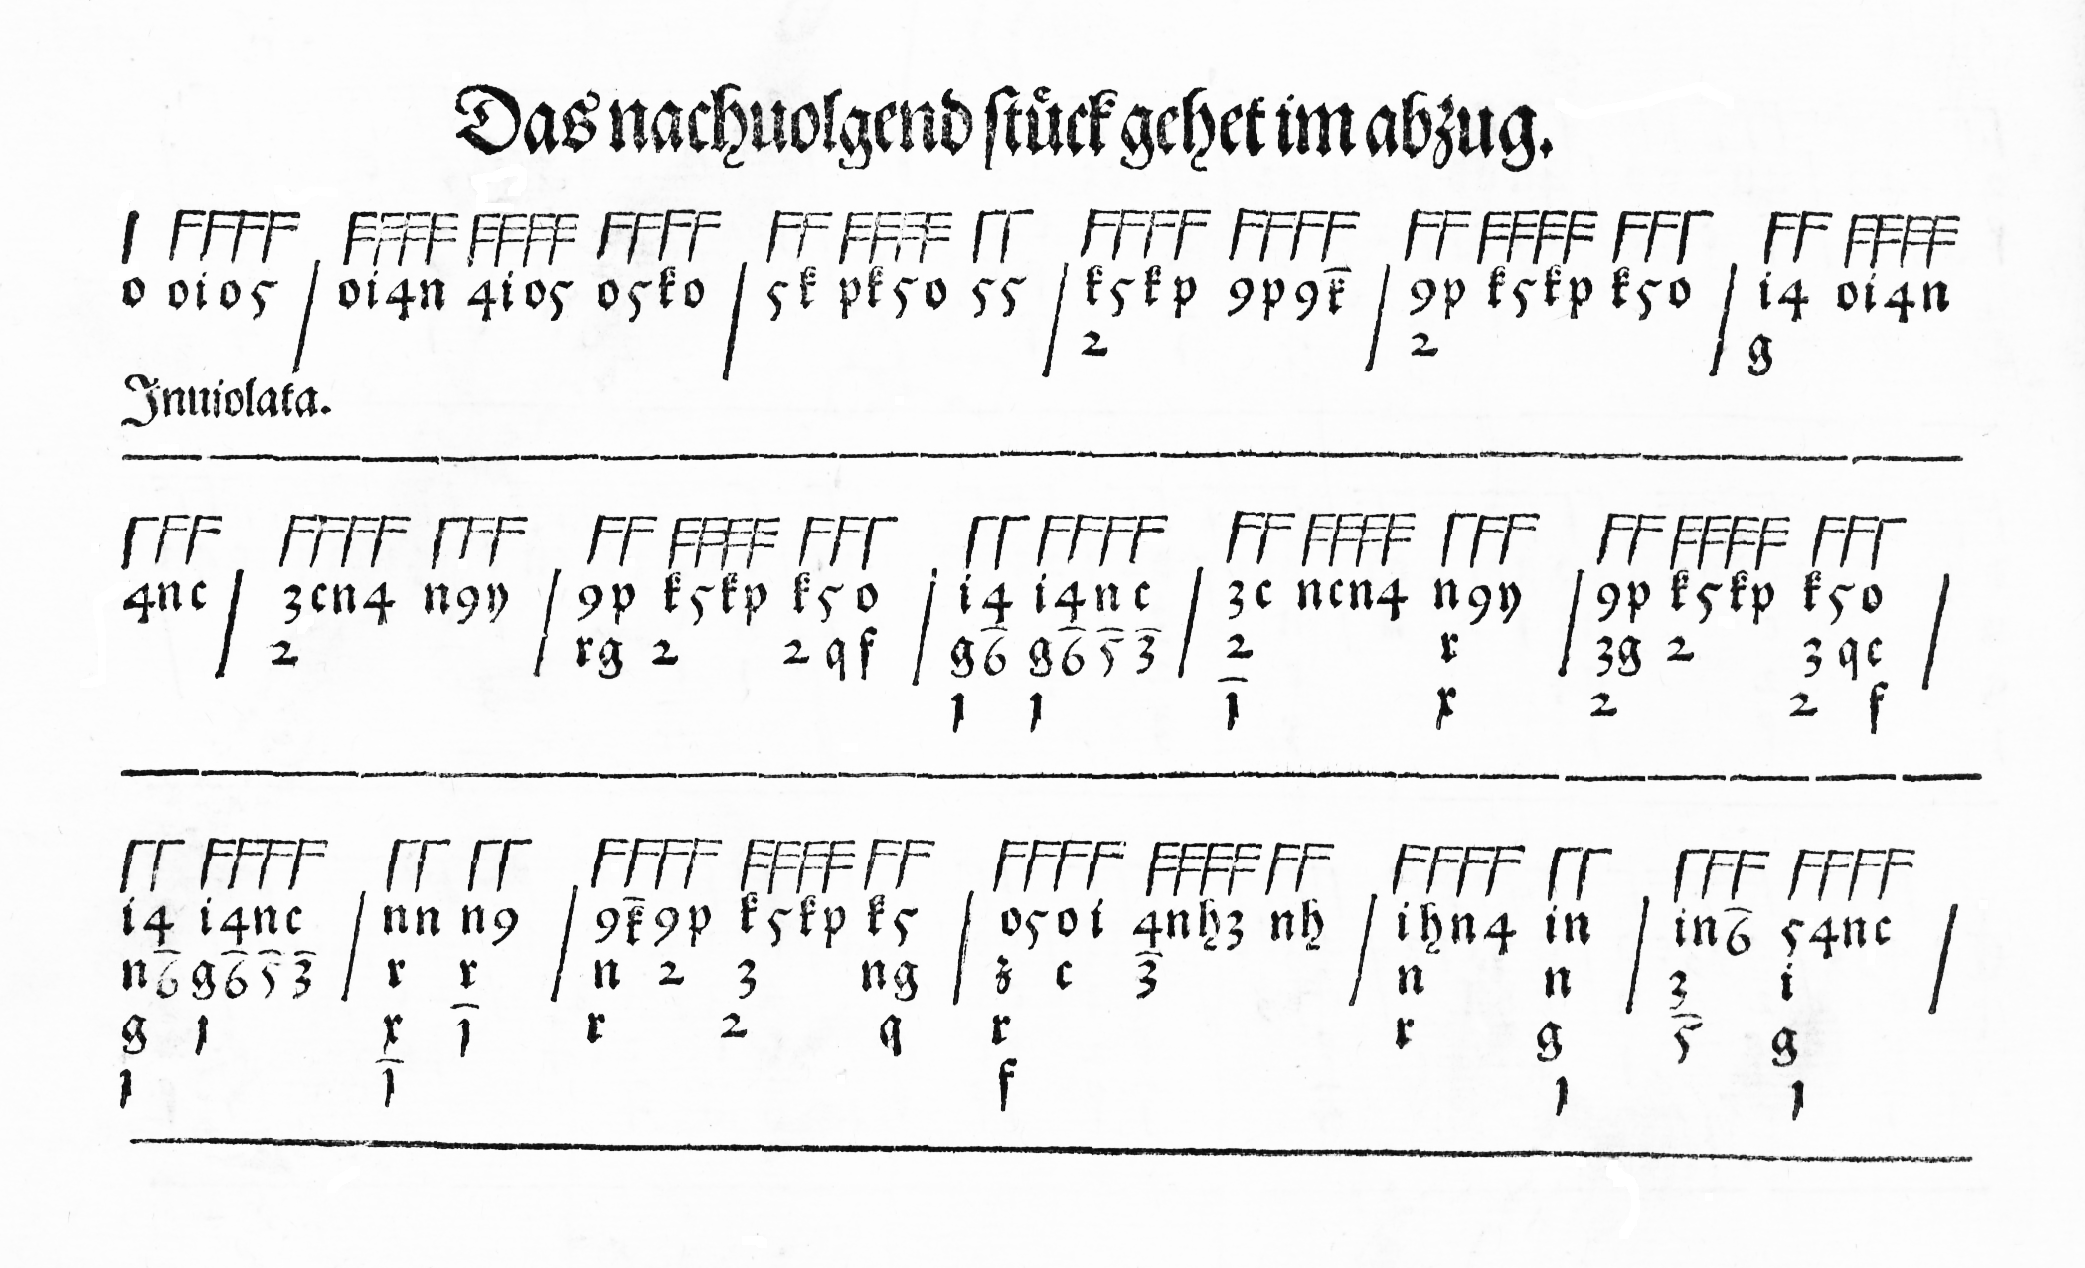 Das nachuolgend stück gehet im abzug.
o oi o5 / oi4n 4io5 o5ko / 5k pk5o 55 / k5kp 9p9k̅ / 9p k5kp k5o / i4 oi4n
2 2 g
Inuiolata.
4nc / 3cn4 n9y / 9p k5kp k5o / i4 i4nc / 3c ncn4 n9y / 9p k5kp k5o /
2 rg 2 2 q f g6̅ g6̅5̅3̅ 2 r 3g 2 3 qc
1 1 1̅ x 2 2 f
i4 i4nc / nn n9 / 9k̅9p k5kp k5 / o5oi 4nh3 nh / ihn4 in / in6̅ 54nc /
n6̅ g6̅5̅3̅ r r n 2 3 ng z c 3̅ n n 3 i
g 1 x 1̅ r 2 q r r g 5̅ g
1 1̅ f 1 1